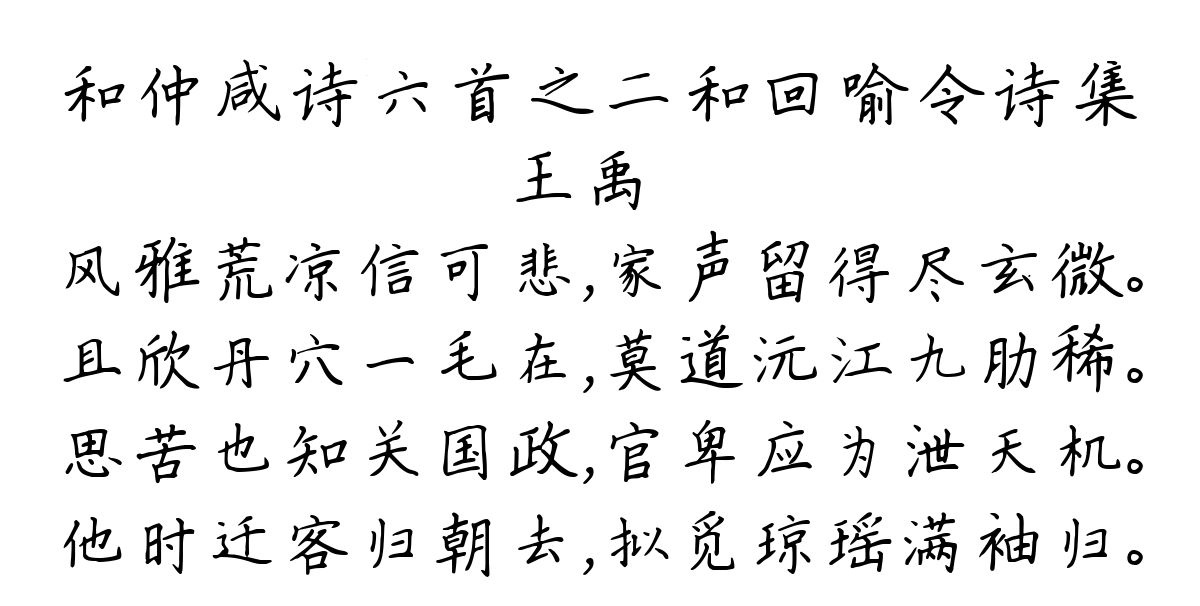 和仲咸诗六首之二和回喻令诗集
王禹
风雅荒凉信可悲,家声留得尽玄微。
且欣丹穴一毛在,莫道沅江九肋稀。
思苦也知关国政,官卑应为泄天机。
他时迁客归朝去,拟觅琼瑶满袖归。